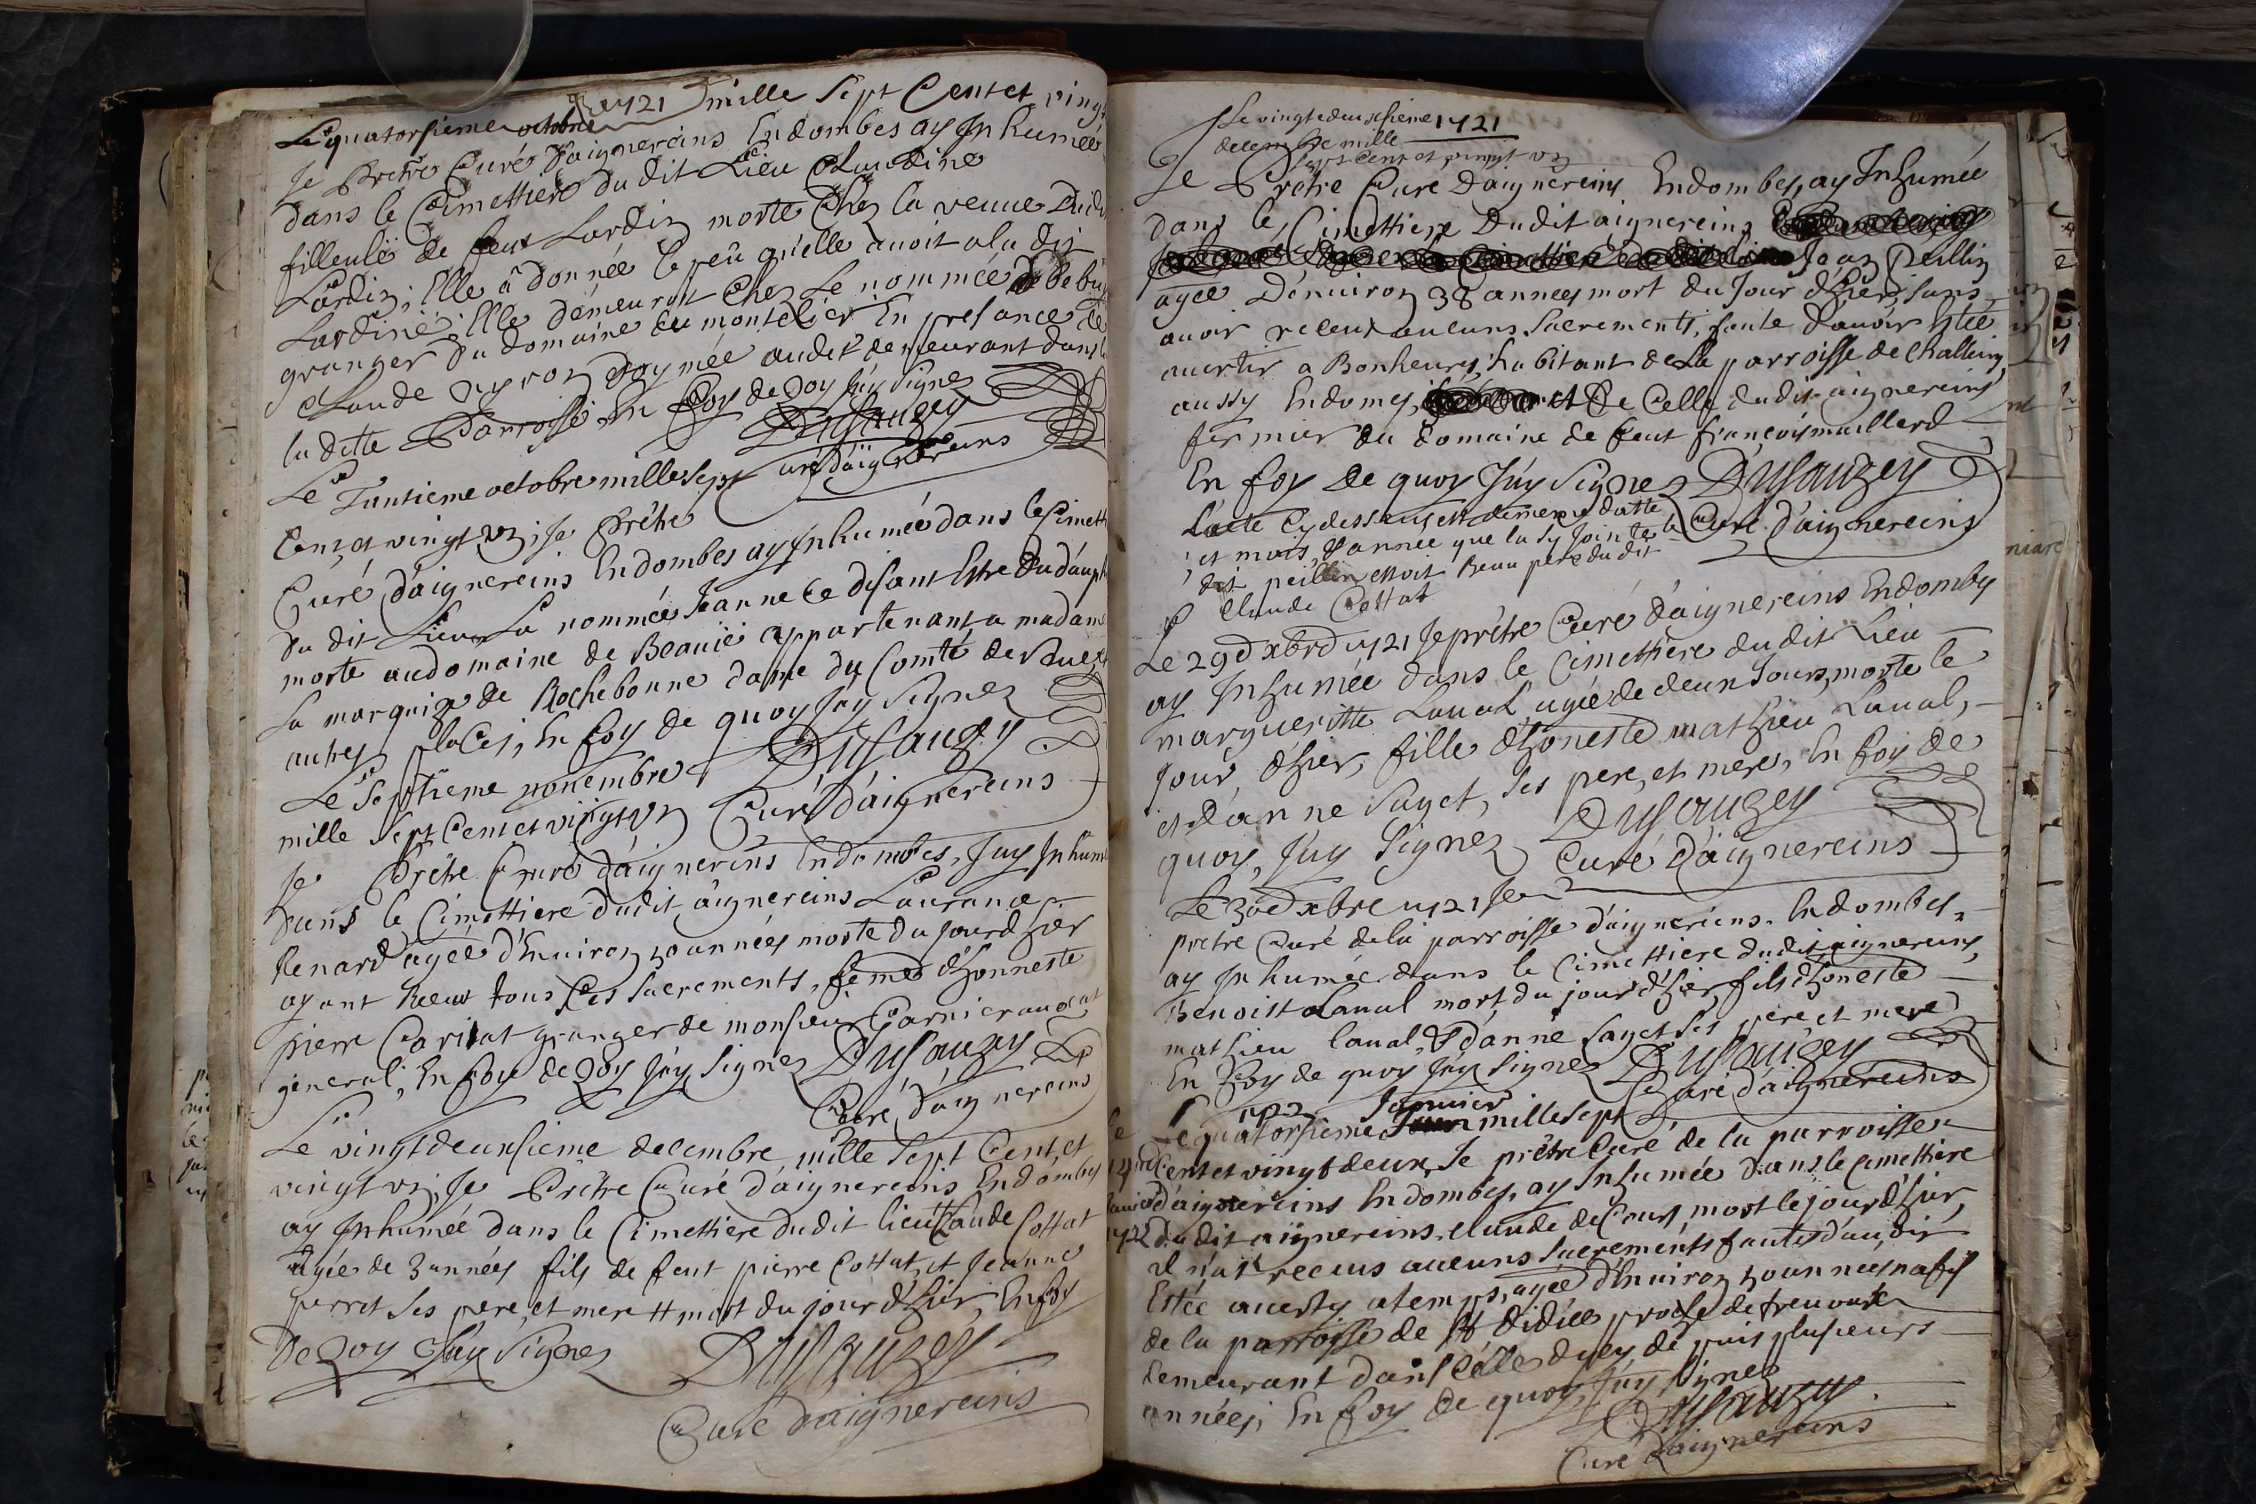 1721
Le quatorsieme octobre mille sept Cent et vingt
Je Prêtre Curé d'aignereins En dombes ay Inhumée
dans le Cimettiere du dit Lieu Claudine
filleule de feut Lardin morte Chez la veuve Dudit
Lardin, Elle â donnée le peû qu'elle avoit a la dit
Lardine, Elle demeuroit Chez Le nommée
granger du domaine du montelier En presance de
Claude demeurant dans
la ditte Parroisse En foy de Qoy J'ay signez
Dusauzey
Curé d'aignereins
Le Trantieme octobre mille sept
Cent et vingt vn, Je Prêtre
Curé d'aignereins En dombes ay Inhumée dans le Cimett
du dit Lieu La nommée Jeanne Ce disant Estre du dauph
morte au domaine de Beauïe appartenant a madame
La marquize de Rochebonne dame du Comté de
autres places, En foy de quoy J'ay signez
Dusauzey
Curé d'aignereins
Le Septieme novembre
mille sept Cent et vingt vn
Je Prêtre Curé d'aignereins En dombes, J'ay Inhum
dans le Cimettiere dudit aignereins Laurance
Renard agée d'Enuiron 50 années morte du jour d'hier
ayant Receut tous Ces sacrements, feme d'honneste
pierre Caritat granger de monsieur Garnier auocat
general, En foy de Qoy J'ay signez Dusauzey
Curé d'aignereins
Le vingt deuxsieme decembre mille sept Cent, et
vingt vn, Je Prêtre Curé d'aignereins En dombes
ay Inhumée dans le Cimettiere dudit lieu Claude Cottat
agée de 3 années fils de feut pierre Cottat, et Jeanne
perret ses pere, et mere # mort du jour d'hier, En foy
de Qoy J'ay signez Dusauzey
Curé d'aignereins
Le vingt deuxsieme 1721
decembre mille
sept Cent et vingt vn
Je Prêtre Curé d'aignereins En dombes, ay Inhumée
dans le Cimettiere Dudit aignereins
Jean Peillin
agée D'enuiron 38 années mort du Jour d'hier, sans
auoir receut aucuns sacrements, faute d'auoir Estée
auertir a Bonheures, habitant de La parroisse de Challeins
aussy En domes, et De Celle dudit aignereins
fermier du domaine de feut françois maillard
En foy de quoy J'ay signez Dusauzey
Curé d'aignereins
L'acte Cy dessus est de meme datte
et mois, d'année que la Cy Jointe le
dit peillin estoit Beau pere du dit
Claude Cottat
Le 29e xbre 1721 Je prêtre Curé d'aignereins En domby
ay Inhumée dans le Cimettiere du dit Lieu
margueritte Laual agée de deux Jours, morte le
jour, d'hier, fille d'honeste mathieu Laual,
et d'anne sayet, ses pere, et mere, En foy de
quoy, J'ay signez Dusauzey
Curé d'aignereins
Le 30e xbre 1721 Je
prêtre Curé de la parroisse d'aignereins. En dombes,
ay Inhumée dans le Cimettiere dudit aignereins,
Benoist Laual mort du jour d'hier, fils d'honeste
mathieu laual, & d'anne sayet ses pere et mere
En foy de quoy J'ay signez Dusauzey
Curé d'aignereins
1722 Januier
Le quatorsieme mille sept
Cent et vingt deux, Je prêtre Curé de la parroisse
d'aignereins En dombes, ay Inhumée dans le Cimettiere
du dit aignereins Claude deCours, mort le jour d'hier,
Il n'a receus aucuns sacrements faute d'auoir
Estée auerty a temps, agée d'Enuiron 50 années natif
de la parroisse de st didier proche de treuoux
demeurant dans Celle d'icy de puis plusieurs
années, En foy de quoy J'ay signez
Dusauzey
Curé d'aignereins